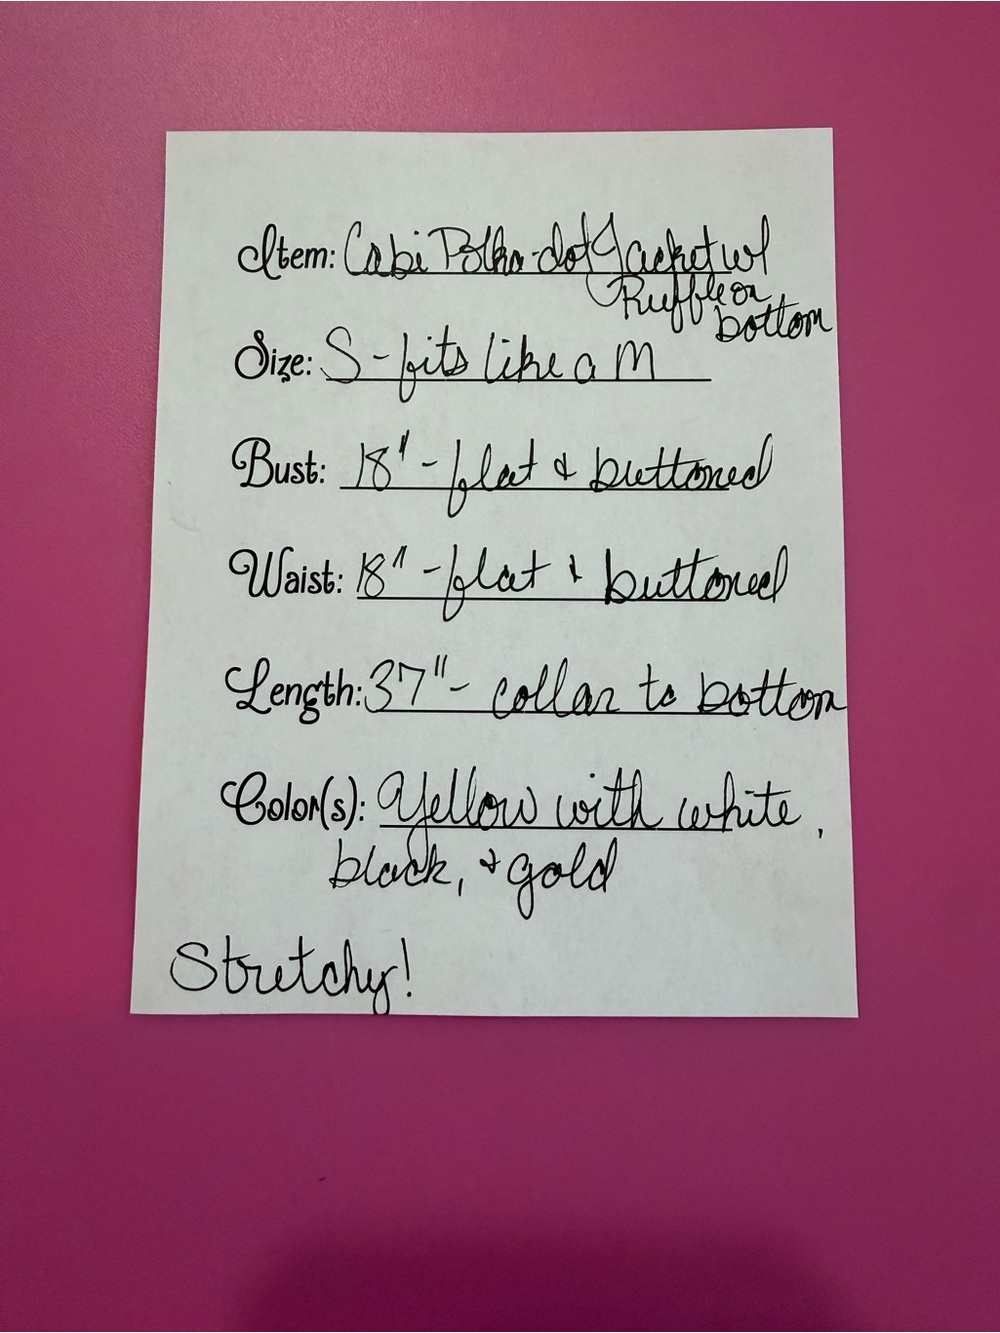 Item: Cabi Polka-dot Jacket w/
Ruffle on
bottom
Size: S - fits like a M
Bust: 18" - flat & buttoned
Waist: 18" - flat & buttoned
Length: 37" - collar to bottom
Color(s): Yellow with white,
black, & gold
Stretchy!